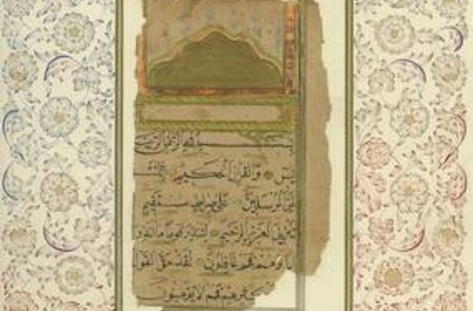 بسم الله الرحمن الرحيم
يس والقرآن الحكيم
لمن المرسلين على صراط مستقيم
تنزيل العزيز الرحيم لتنذر قوما ما انذر
اباؤهم فهم غافلون لقد حق القول
اكثرهم فهم لا يؤمنون